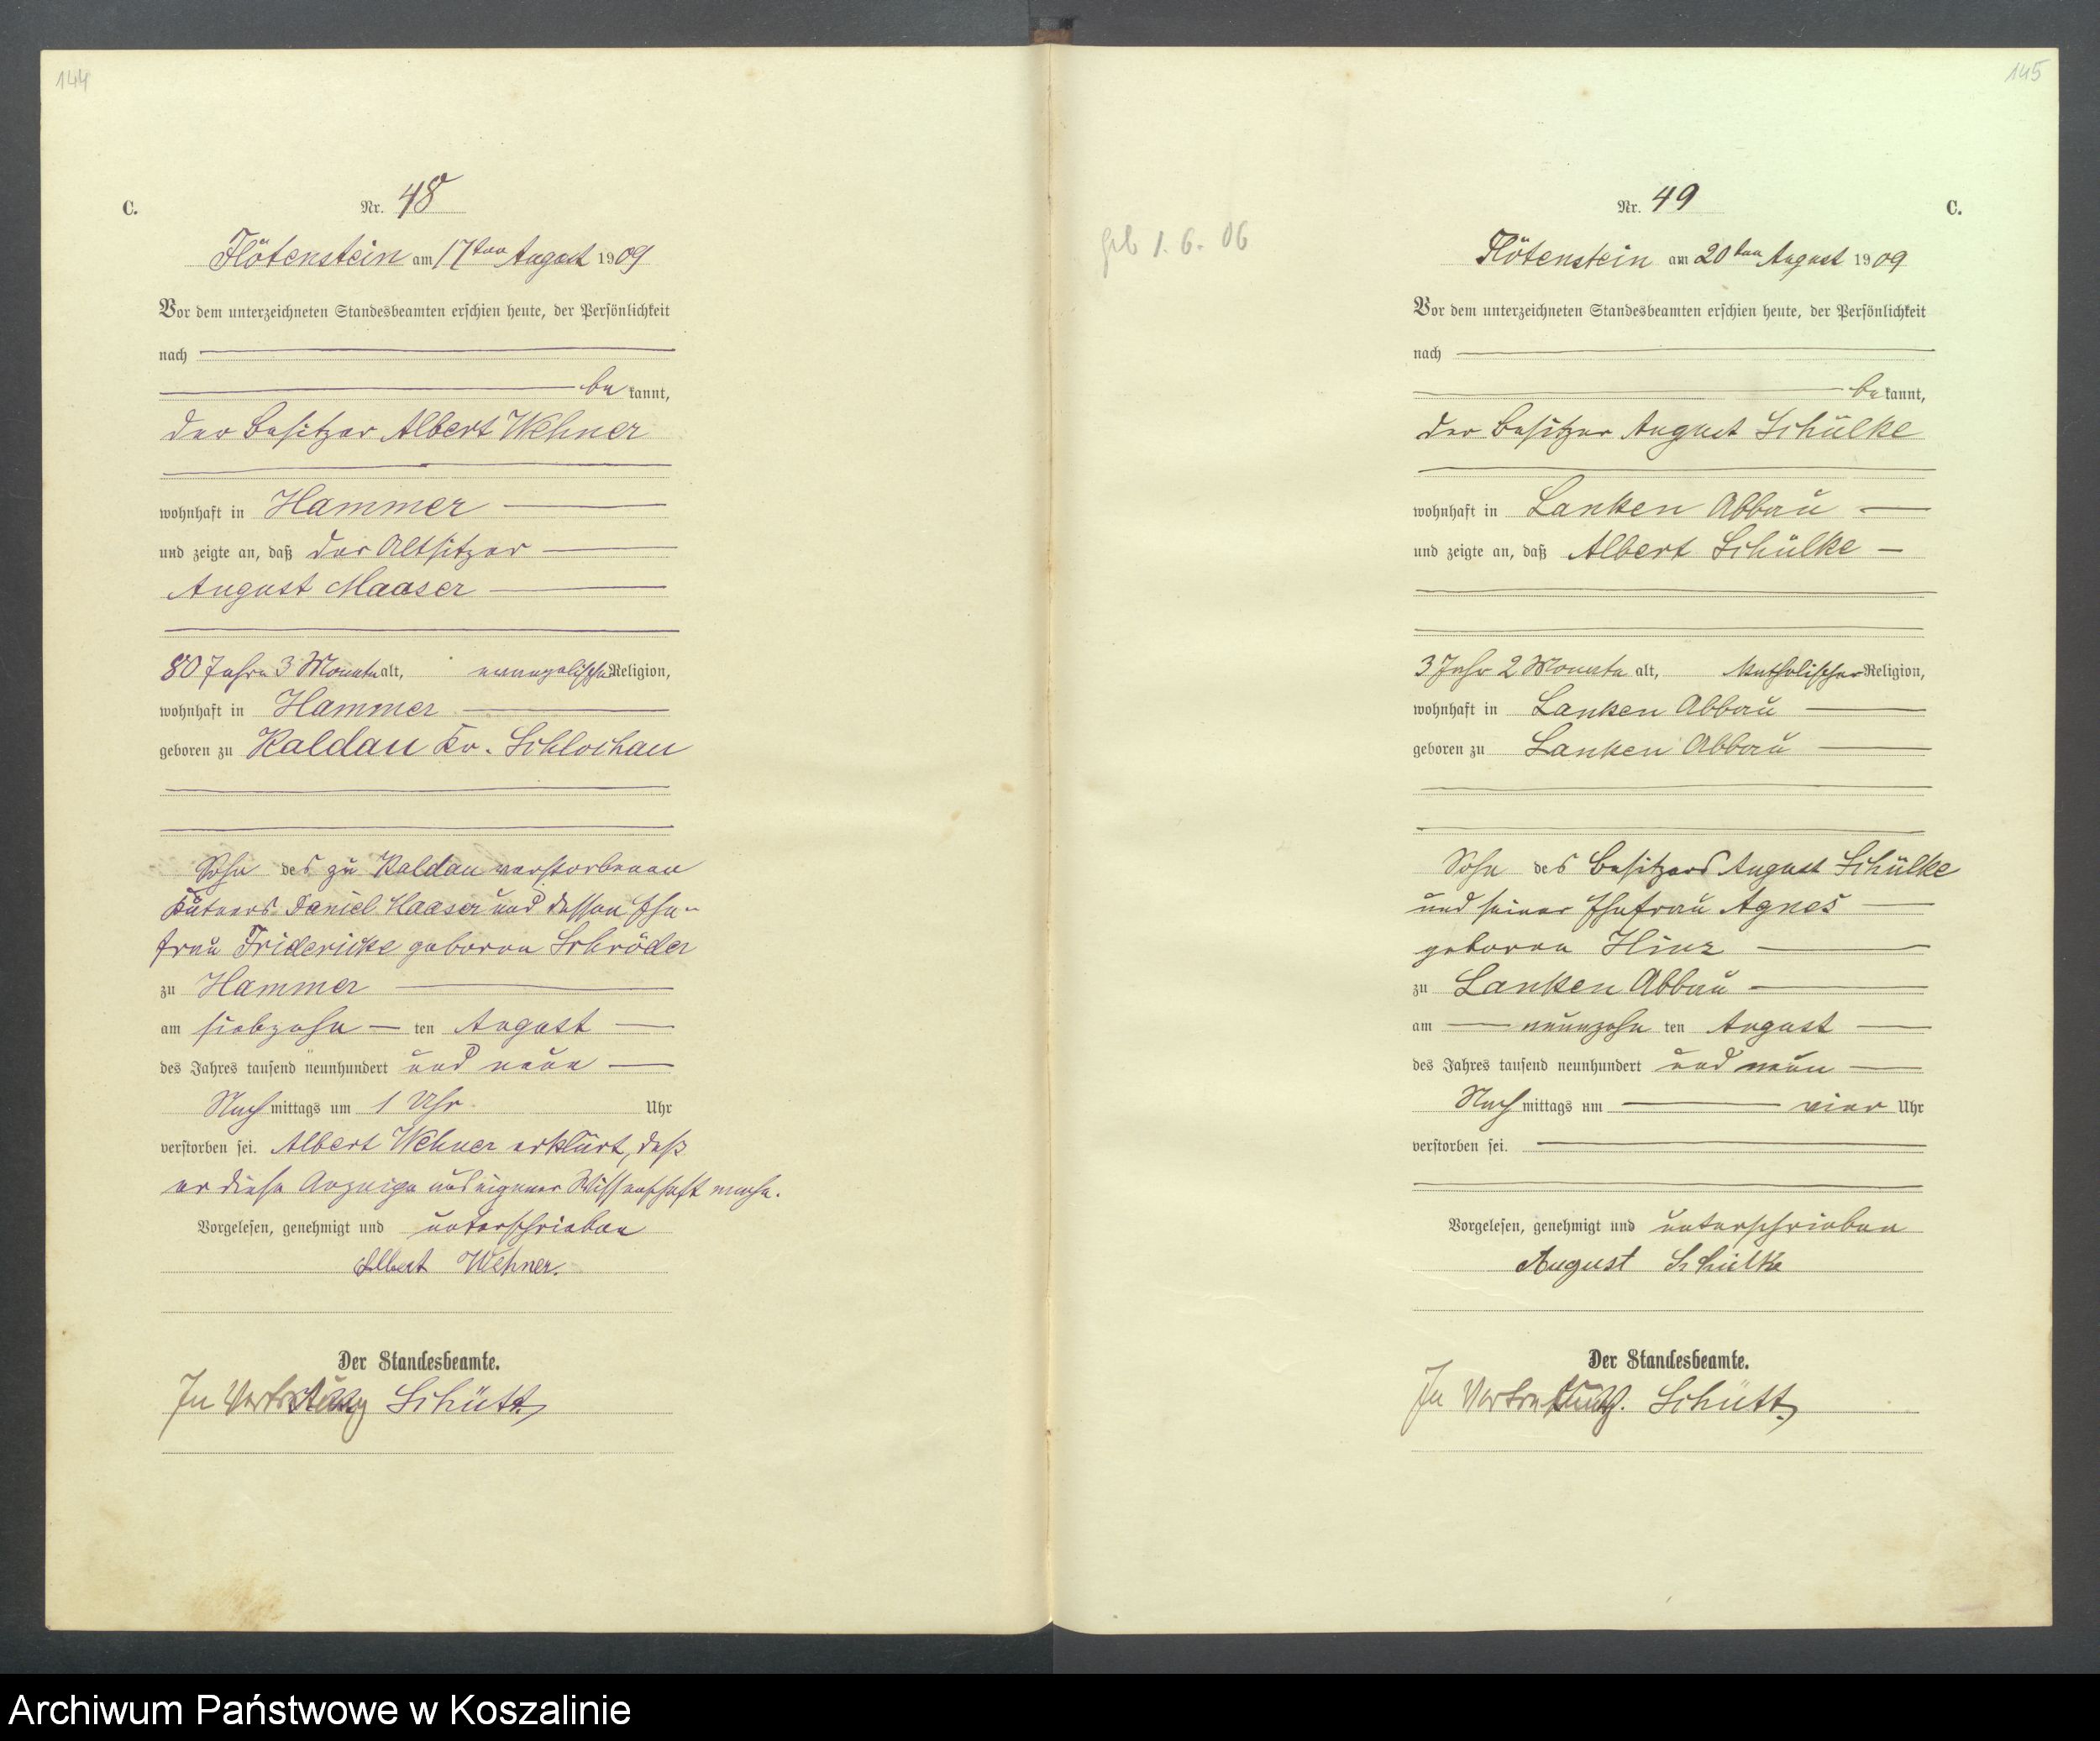 144
C.
Nr. 48
Flötenstein am 17ten August 1909
Vor dem unterzeichneten Standesbeamten erschien heute, der Persönlichkeit
nach
be kannt,
der Besitzer Albert Wehner
wohnhaft in Hammer
und zeigte an, daß der Altsitzer
August Maaser
80 Jahre 3 Monate alt, evangelischer Religion,
wohnhaft in Hammer
geboren zu Kaldau Kr. Schlochau
Sohn des zu Kaldau verstorbenen
Kätners Daniel Maaser und dessen Ehe-
frau Fridericke geborene Schröder
zu Hammer
am siebzehn ten August
des Jahres tausend neunhundert und neun
Nach mittags um 1 Uhr Uhr
verstorben sei. Albert Wehner erklärt, daß
er diese Anzeige aus eigener Wissenschaft mache.
Vorgelesen, genehmigt und unterschrieben
Albert Wehner.
Der Standesbeamte.
In Vertretung Schütt
145
geb 1. 6. 06
Nr. 49
C.
Flötenstein am 20ten August 1909
Vor dem unterzeichneten Standesbeamten erschien heute, der Persönlichkeit
nach
be kannt,
der Besitzer August Schülke
wohnhaft in Lanken Abbau
und zeigte an, daß Albert Schülke
3 Jahr 2 Monate alt, katholischer Religion,
wohnhaft in Lanken Abbau
geboren zu Lanken Abbau
Sohn des Besitzers August Schülke
und seiner Ehefrau Agnes
geborene Hinz
zu Lanken Abbau
am neunzehn ten August
des Jahres tausend neunhundert und neun
Nach mittags um vier Uhr
verstorben sei.
Vorgelesen, genehmigt und unterschrieben
August Schülke
Der Standesbeamte.
In Vertretung. Schütt
Archiwum Państwowe w Koszalinie